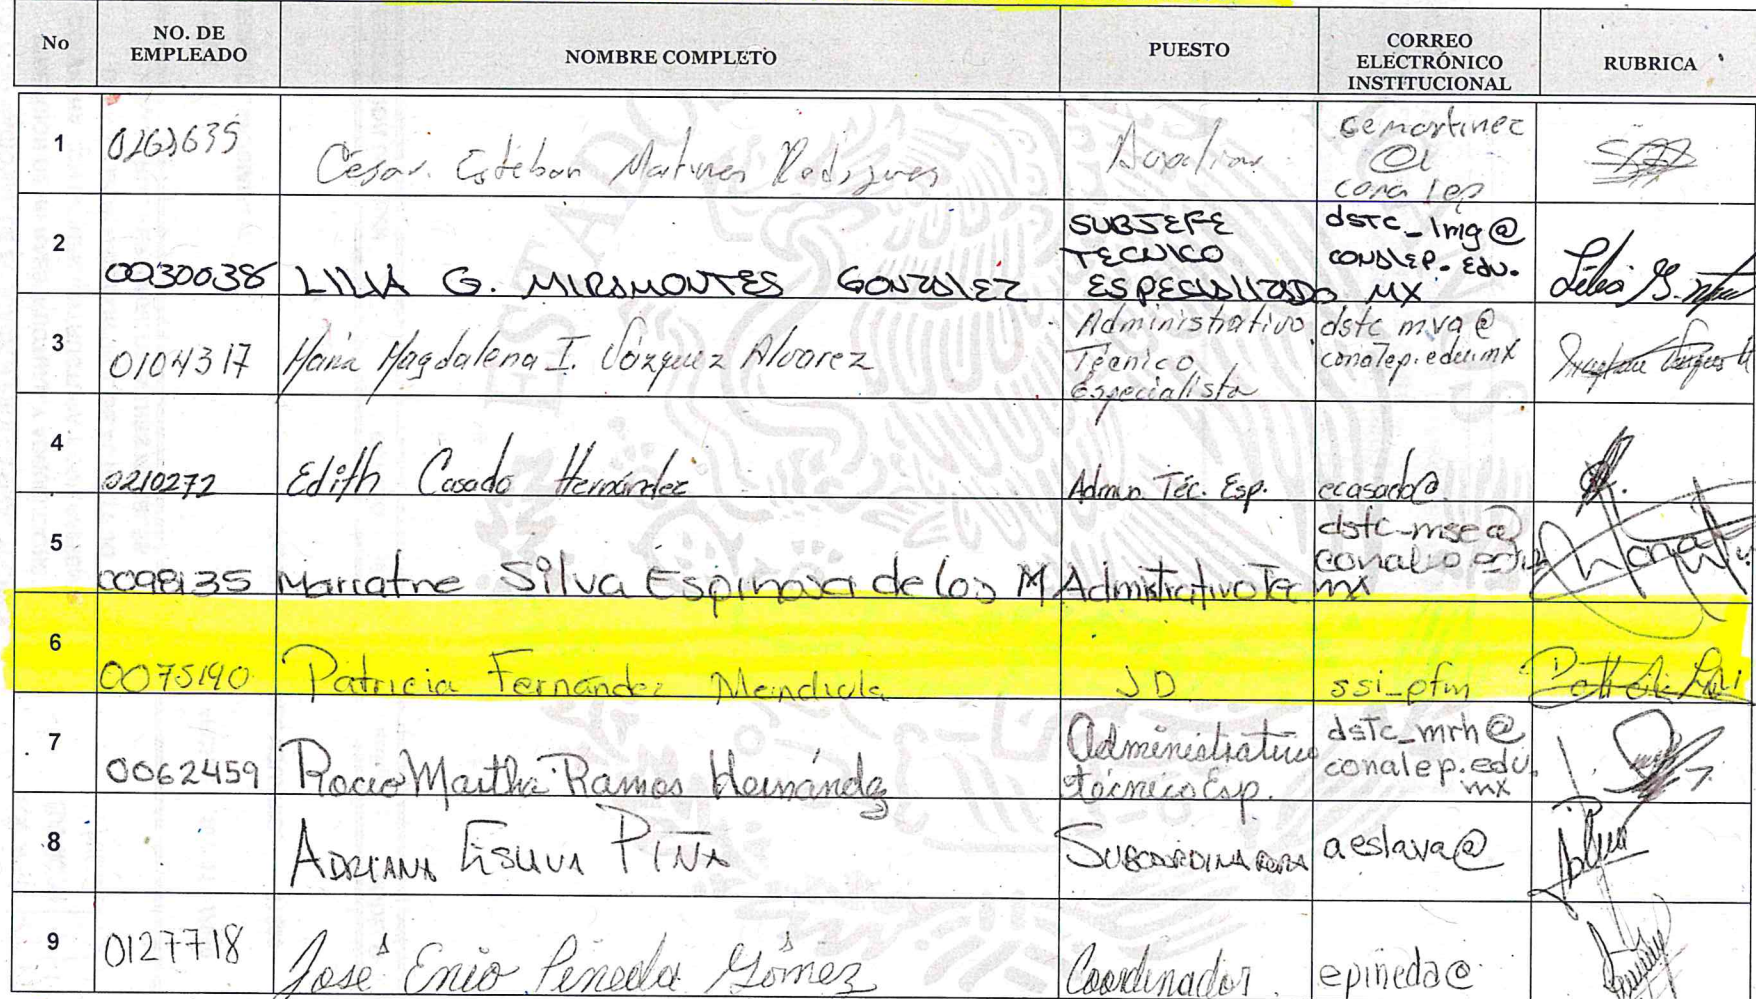 No NO. DE EMPLEADO NOMBRE COMPLETO PUESTO CORREO ELECTRÓNICO INSTITUCIONAL RUBRICA
1 César Esteban Martinez Rodriguez Auxiliar cemartinez
@
conalep
2 0030038 LILIA G. MIRAMONTES GONZALEZ SUBJEFE
TECNICO
ESPECIALIZADO dstc_lmg@
CONALEP.EDU.
MX
3 0104317 María Magdalena I. Vázquez Alvarez Administrativo
Técnico
Especialista dstc mva@
conalep.edu.mx
4 0210272 Edith Casado Hernández Admun. Téc. Esp. ecasado@
5 0098135 Mariatne Silva Espinosa de los M Admistrativo Tec dstc-mse@
mx
6 0075190 Patricia Fernández Mendiola JD ssi_pfm
7 0062459 Rocio Martha Ramos Hernández Administrativo
técnico Esp. dstc_mrh@
conalep.edu.
mx
8 ADRIANA ESLAVA PIÑA SUBCOORDINADORA aeslava@
9 0127718 José Enio Pineda Gómez Coordinador epineda@